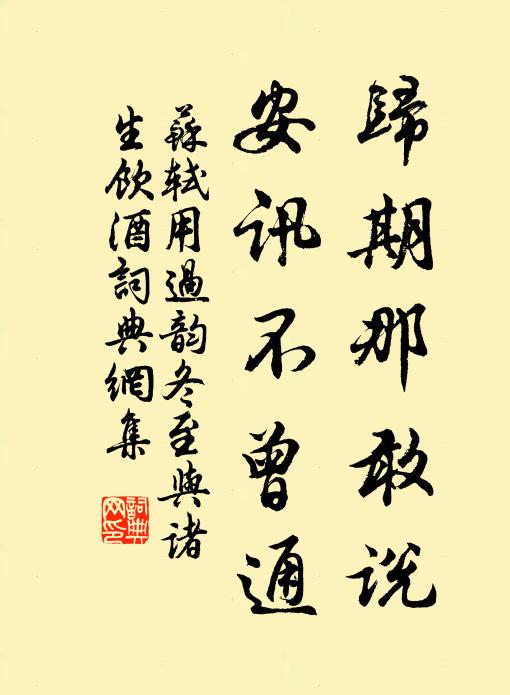 歸期那敢説
安訊不曾通
蘇軾用過韵冬至與諸
生飲酒詞典網集
詞典
网印